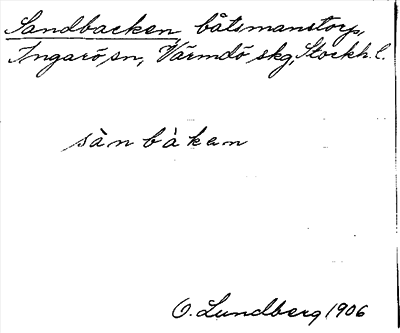 Sandbacken, båtsmanstorp,
Ingarö sn, Värmdö skg, Stockh. l.
sànbàken
O. Lundberg 1906